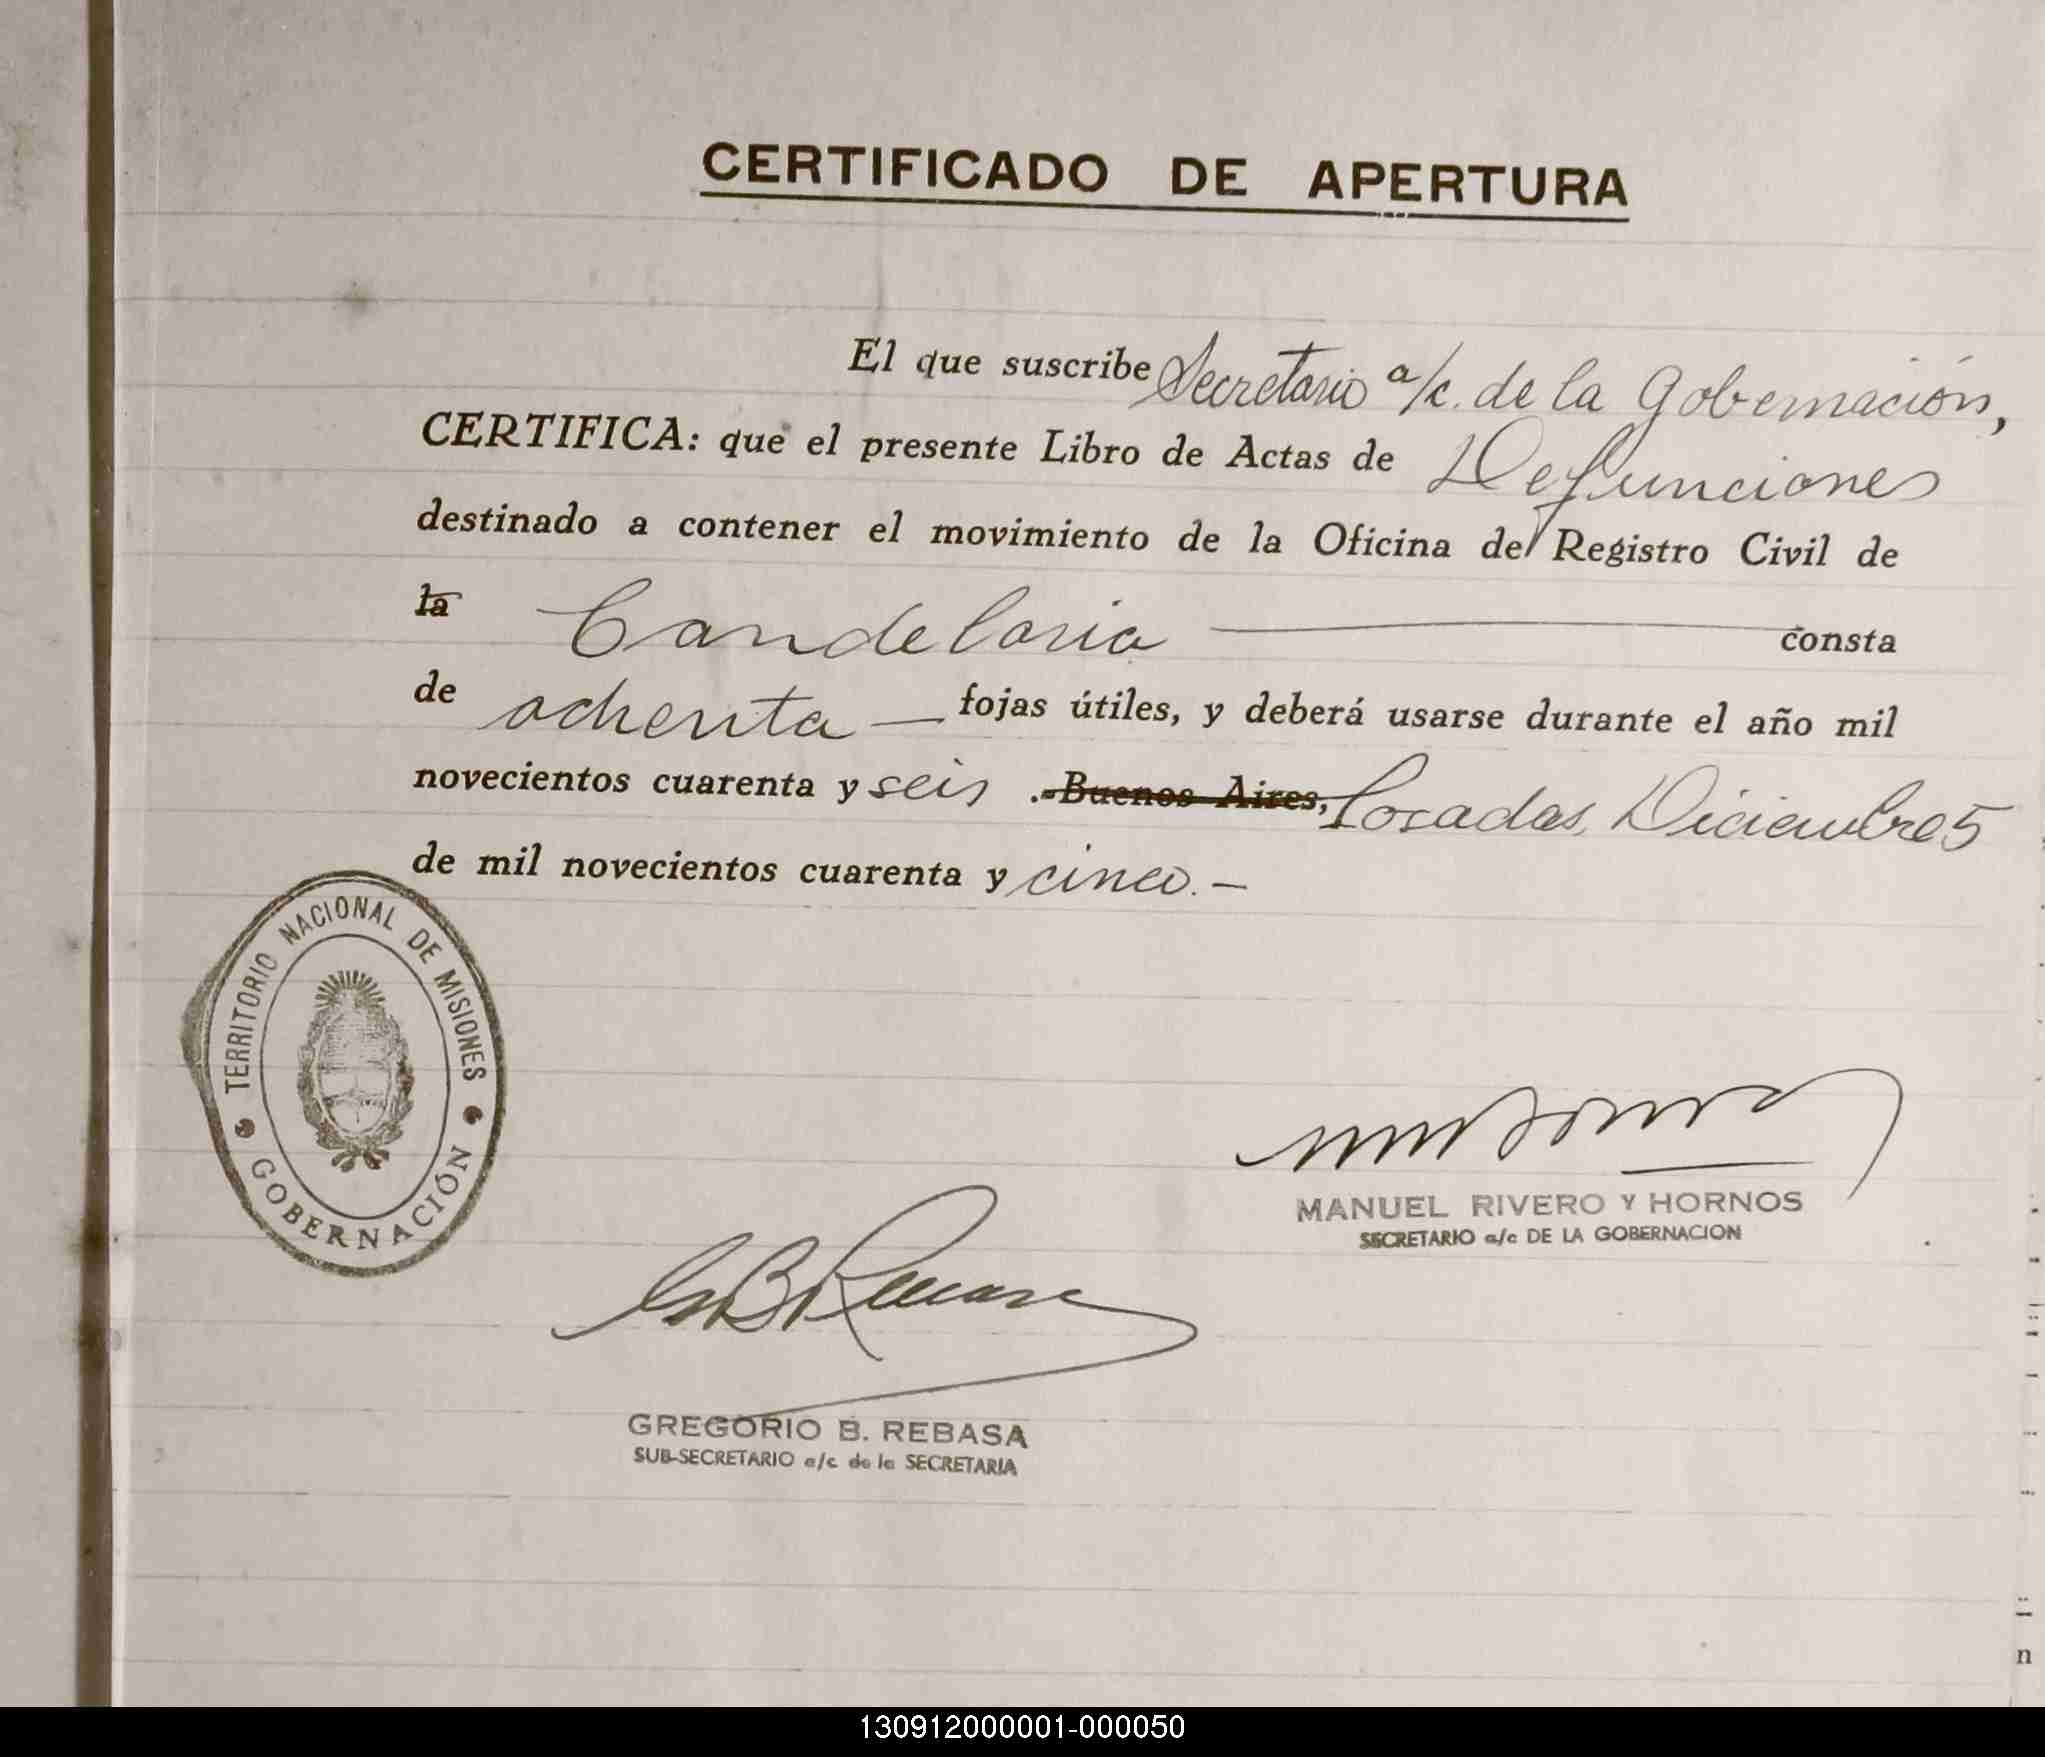 CERTIFICADO DE APERTURA
El que suscribe Secretario a/c. de la Gobernación,
CERTIFICA: que el presente Libro de Actas de Defunciones
destinado a contener el movimiento de la Oficina del Registro Civil de
la Candelaria — consta
de ochenta — fojas útiles, y deberá usarse durante el año mil
novecientos cuarenta y seis .-Buenos Aires, Posadas, Diciembre 5
de mil novecientos cuarenta y cinco. —
TERRITORIO NACIONAL DE MISIONES
GOBERNACIÓN
MANUEL RIVERO Y HORNOS
SECRETARIO a/c DE LA GOBERNACION
GREGORIO B. REBASA
SUB-SECRETARIO a/c de la SECRETARIA
n
130912000001-000050